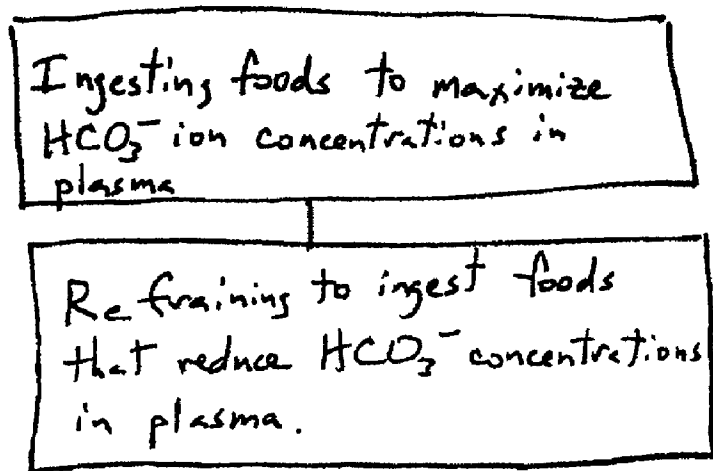 Ingesting foods to maximize
HCO₃⁻ ion concentrations in
plasma
Refraining to ingest foods
that reduce HCO₃⁻ concentrations
in plasma.